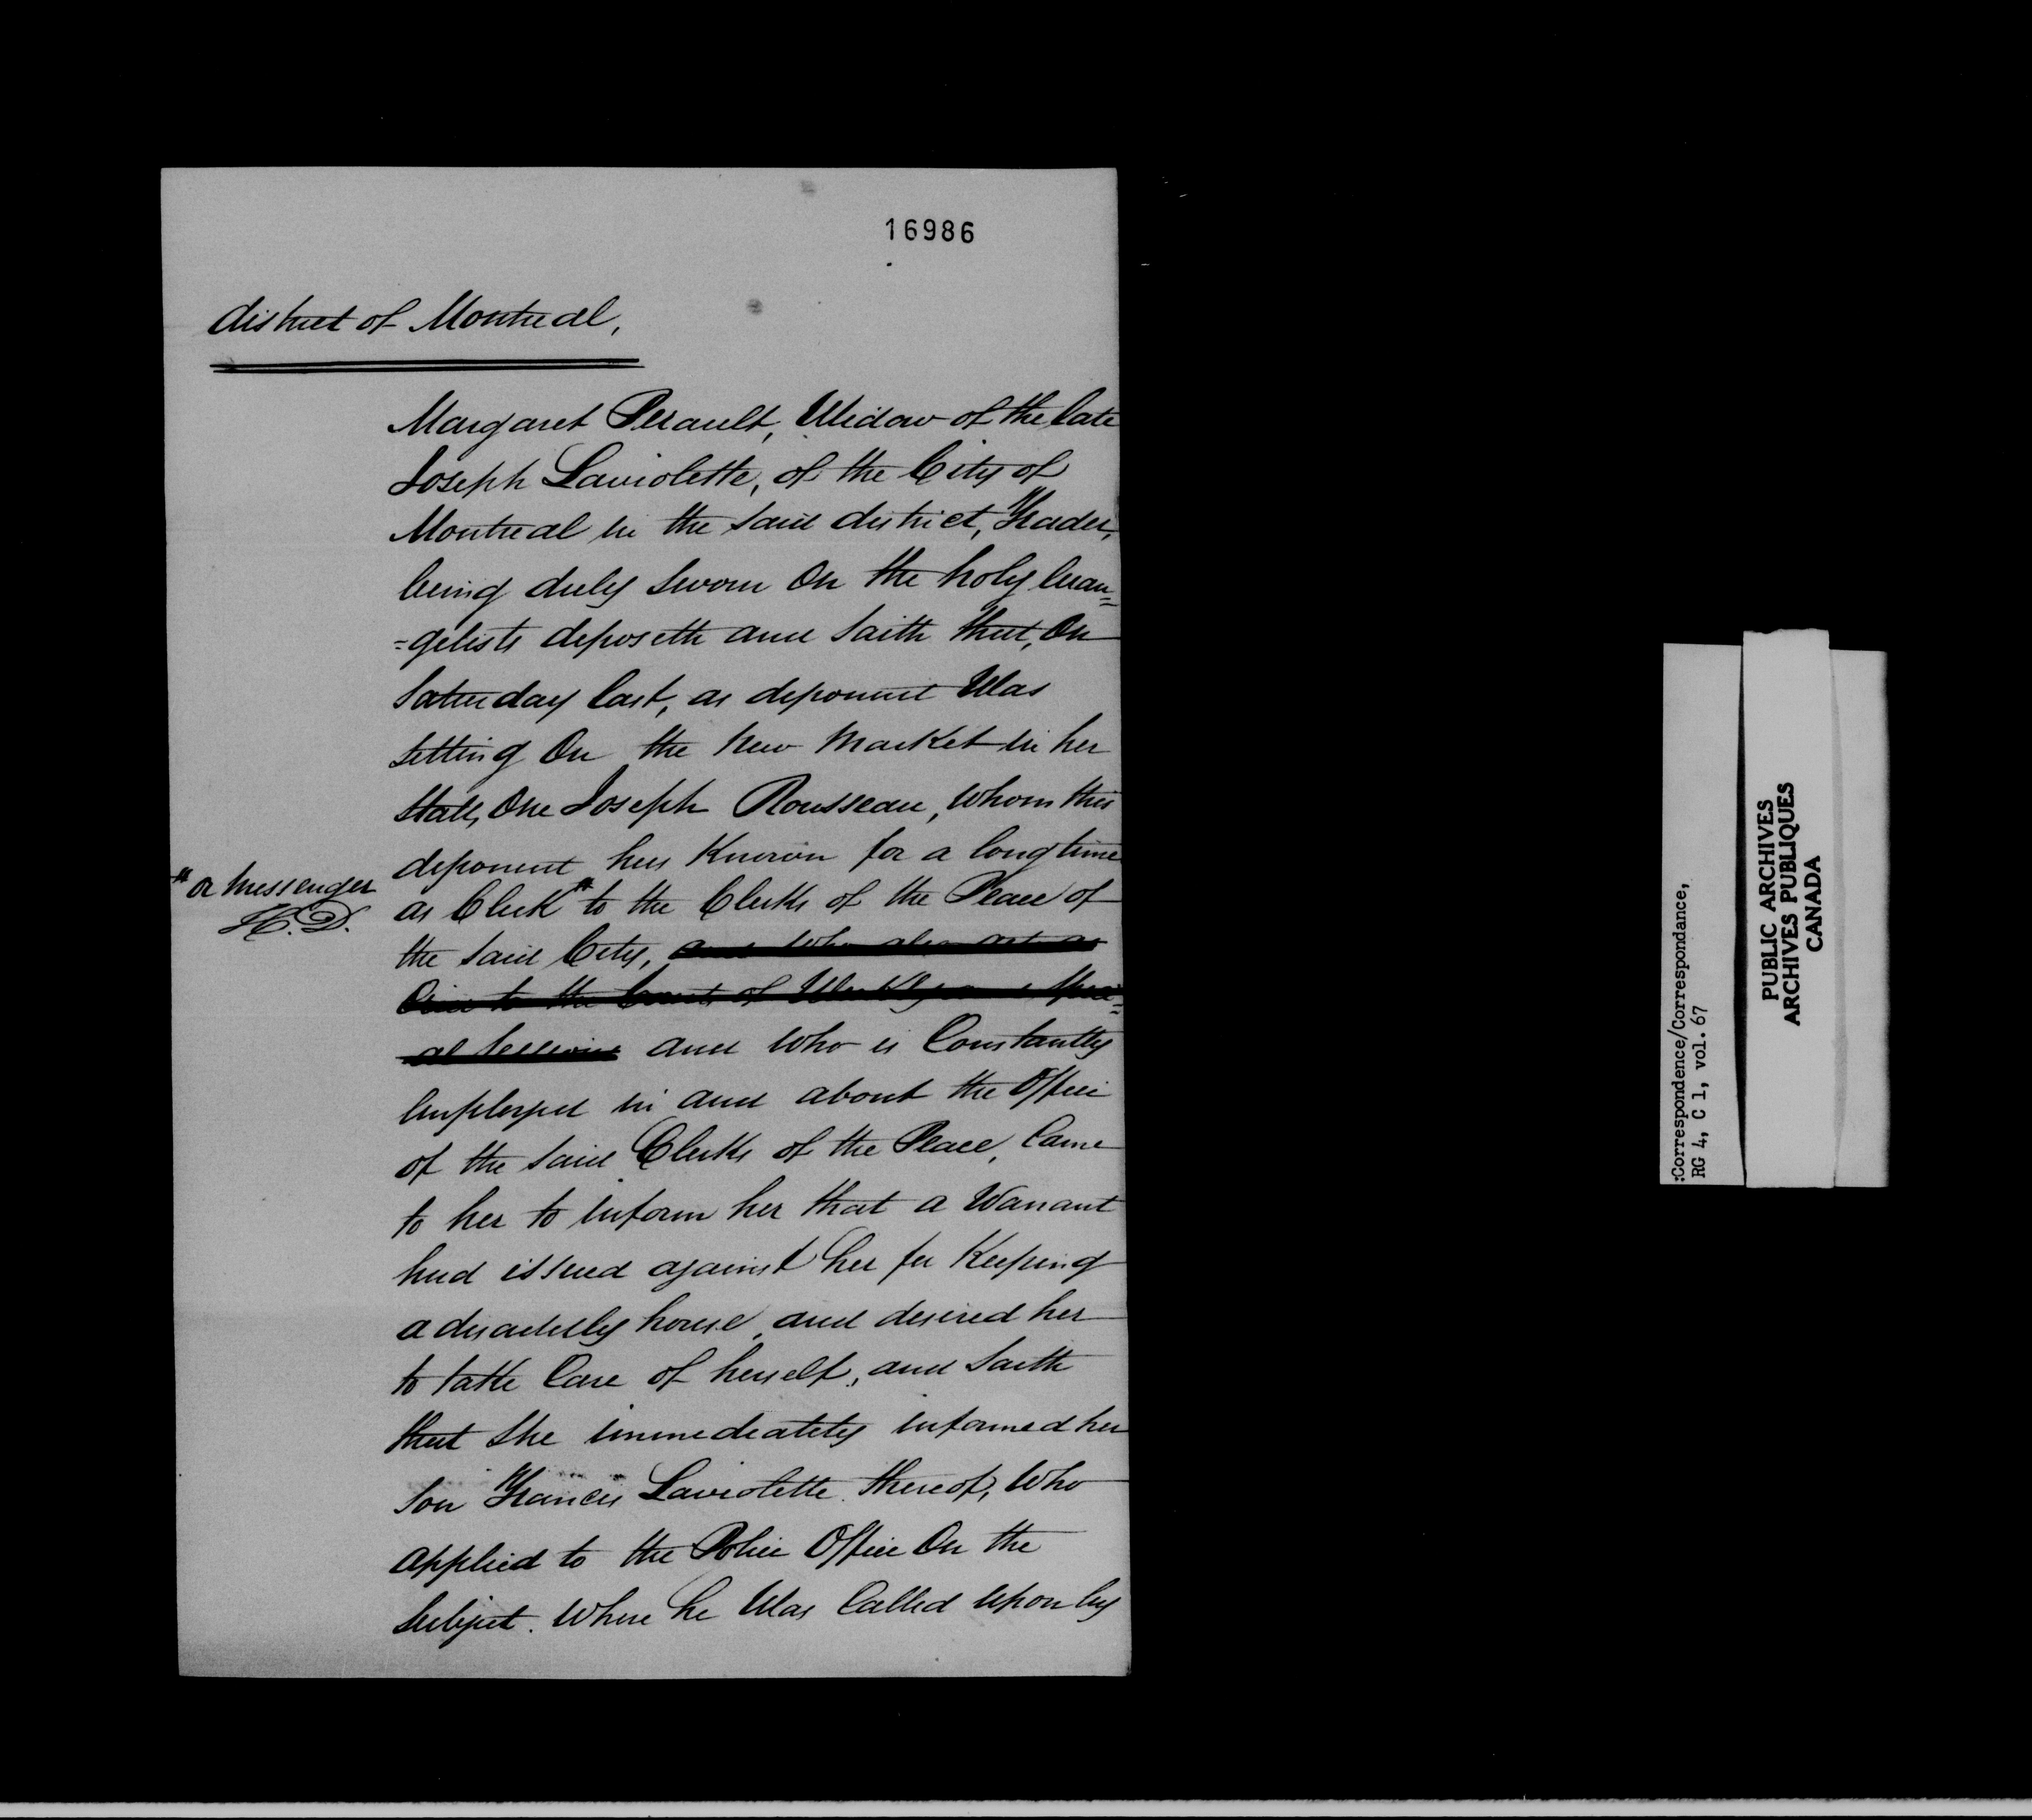 16986
district of Montreal,
Margaret Perault, Widow of the late
Joseph Laviolette, of the City of
Montreal in the said district, Trader,
being duly sworn On the holy Evan=
=gelists deposeth and saith that, On
Saturday last, as deponent Was
setting On the New Market in her
stall, One Joseph Rousseau, whom this
deponent has Known for a long time
" or messenger
H.D.
as Clerk " to the Clerks of the Peace of
the said City, and who also act as
Crier to the Courts of Weekly and Speci=
al Sessions and who is Constantly
Employed in and about the Office
of the said Clerks of the Peace, Came
to her to inform her that a Warrant
had issued against her for Keeping
a disorderly house, and desired her
to take Care of herself, and saith
that she immediately informed her
son Francis Laviolette thereof, Who
applied to the Police Office On the
subject. Where he Was Called upon by
:Correspondence/Correspondance,
RG 4, C 1, vol. 67
PUBLIC ARCHIVES
ARCHIVES PUBLIQUES
CANADA